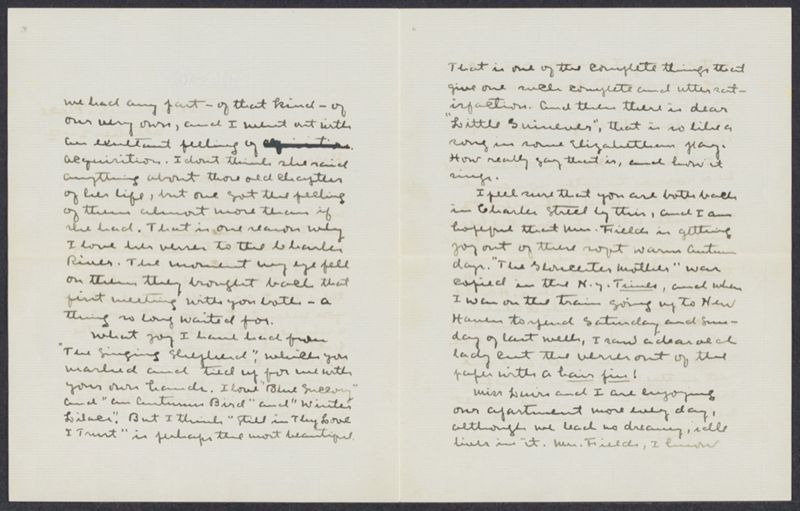 we had any part - of that kind - of
our very own, and I went out with
an exultant feeling of
acquisition. I dont think she said
anything about those old chapters
of her life, but one got the feeling
of them almost more than if
she had. That is one reason why
I love her verses to the Charles
River. The moment my eye fell
on them they brought back that
first meeting with you both - a
thing so long waited for.
What joy I have had from
"The Singing Shepherd", which you
marked and tied up for me with
your own hands. I love "Blue Succory"
and "An Autumn Bird" and "Winter
Lilacs". But I think "Still in Thy Love
I Trust" is perhaps the most beautiful.
That is one of the complete things that
give one such complete and utter sat-
isfaction. And then there is dear
"Little Guinever", that is so like a
song in some Elizabethan play.
How really gay that is, and how it
sings.
I feel sure that you are both back
in Charles Street by this, and I am
hopeful that Mrs. Fields is getting
joy out of these soft warm autumn
days. "The Gloucester Mother" was
copied in the N.Y. Times, and when
I was on the train going up to New
Haven to spend Saturday and Sun-
day of last week, I saw a dear old
lady cut the verses out of the
paper with a hair pin!
Miss Lewis and I are enjoying
our apartment more every day,
although we lead no dreamy, idle
lives in it. Mrs. Fields, I know